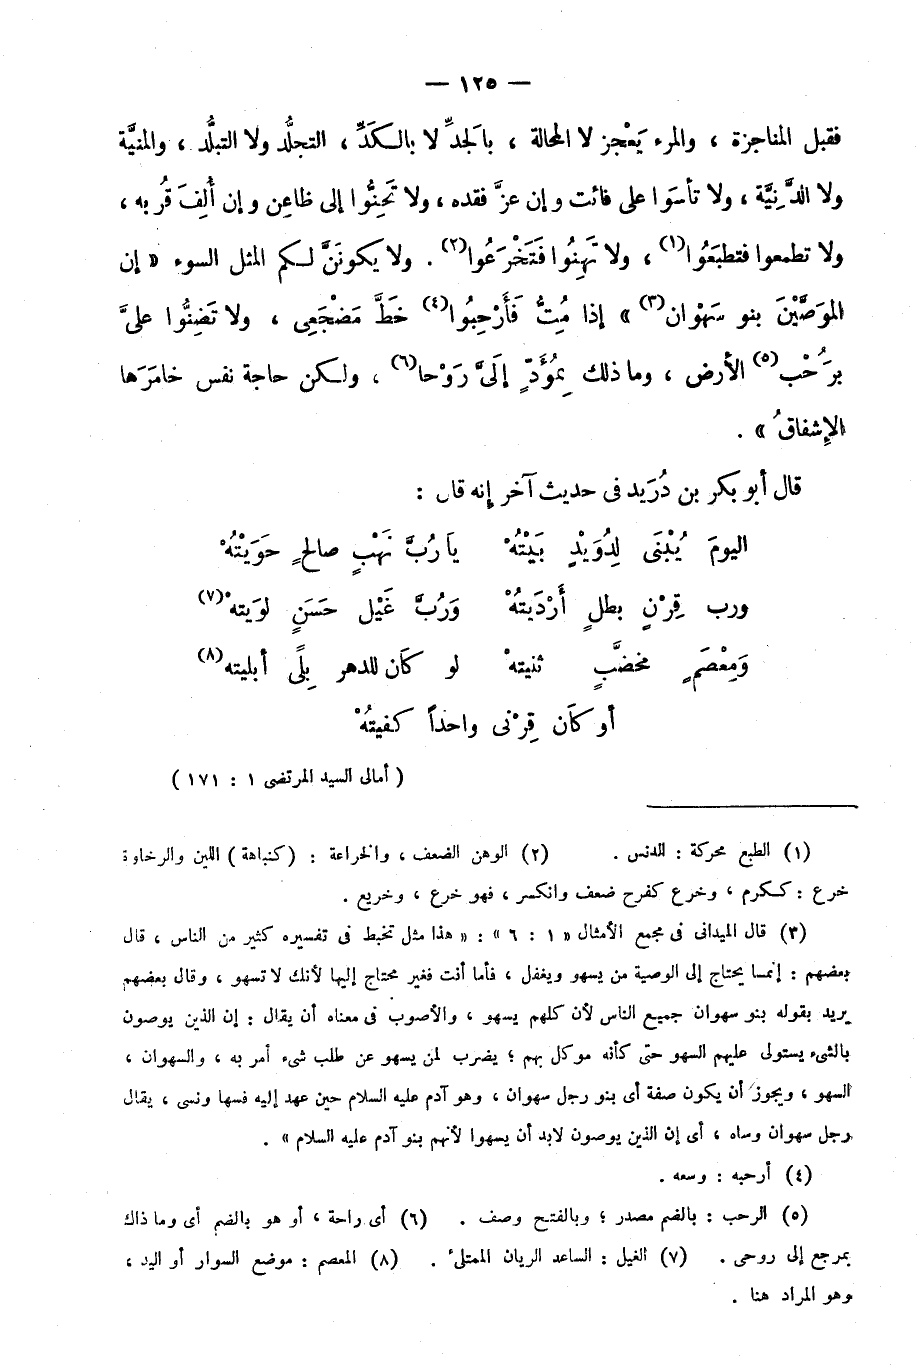 — ١٢٥ —
فقبل المناجزة ، والمرء يَعْجز لا المحالة ، بالجدِّ لا بالكَدِّ ، التجلُّد ولا التبلُّد ، والمنيَّة
ولا الدَّنِيَّة ، ولا تأسَوا على فائت وإن عزَّ فقده ، ولا تَحِنُّوا إلى ظاعِن وإن أُلِفَ قُربه ،
ولا تطمعوا فتطبَعُوا(١) ، ولا تَهِنُوا فَتَخْرَعُوا(٢) . ولا يكونَنَّ لكم المثل السوء « إن
الموَصَّيْنَ بنو سَهْوان(٣) » إذا مُتُّ فَأَرْحِبُوا(٤) خَطَّ مَضْجَعِى ، ولا تَضِنُّوا علىَّ
برَحْب(٥) الأرض ، وما ذلك بِمُؤَدٍّ إلىَّ رَوْحا(٦) ، ولكن حاجة نفس خامَرَها
الإشفاقُ » .
قال أبو بكر بن دُرَيد فى حديث آخر إنه قال :
اليومَ يُبْنَى لِدُوَيْدٍ بَيْتُهْ يا رُبَّ نَهْبٍ صالحٍ حَوَيْتُهْ
ورب قِرْنٍ بطلٍ أَرْدَيتهْ وَرُبَّ غَيْل حَسَنٍ لوَيتهْ(٧)
وَمِعْصَمٍ مخضَّبٍ ثنيتهْ لو كان للدهر بِلًى أبليته(٨)
أو كان قِرْنى واحداً كفيتُهْ
( أمالى السيد المرتضى ١ : ١٧١ )
(١) الطبع محركة : الدنس . (٢) الوهن الضعف ، والخراعة : (كنباهة) اللين والرخاوة
خرع : ككرم ، وخرع كفرح ضعف وانكسر ، فهو خرع ، وخريع .
(٣) قال الميدانى فى مجمع الأمثال « ١ : ٦ » : « هذا مثل تخبط فى تفسيره كثير من الناس ، قال
بعضهم : إنما يحتاج إلى الوصية من يسهو ويغفل ، فأما أنت فغير محتاج إليها لأنك لا تسهو ، وقال بعضهم
يريد بقوله بنو سهوان جميع الناس لأن كلهم يسهو ، والأصوب فى معناه أن يقال : إن الذين يوصون
بالشىء يستولى عليهم السهو حتى كأنه موكل بهم ؛ يضرب لمن يسهو عن طلب شىء أمر به ، والسهوان ،
السهو ، ويجوز أن يكون صفة أى بنو رجل سهوان ، وهو آدم عليه السلام حين عهد إليه فسها ونسى ، يقال
رجل سهوان وساه ، أى إن الذين يوصون لابد أن يسهوا لأنهم بنو آدم عليه السلام » .
(٤) أرحبه : وسعه .
(٥) الرحب : بالضم مصدر ؛ وبالفتح وصف . (٦) أى راحة ، أو هو بالضم أى وما ذاك
بمرجع إلى روحى . (٧) الغيل : الساعد الريان الممتلىء . (٨) المعصم : موضع السوار أو اليد ،
وهو المراد هنا .